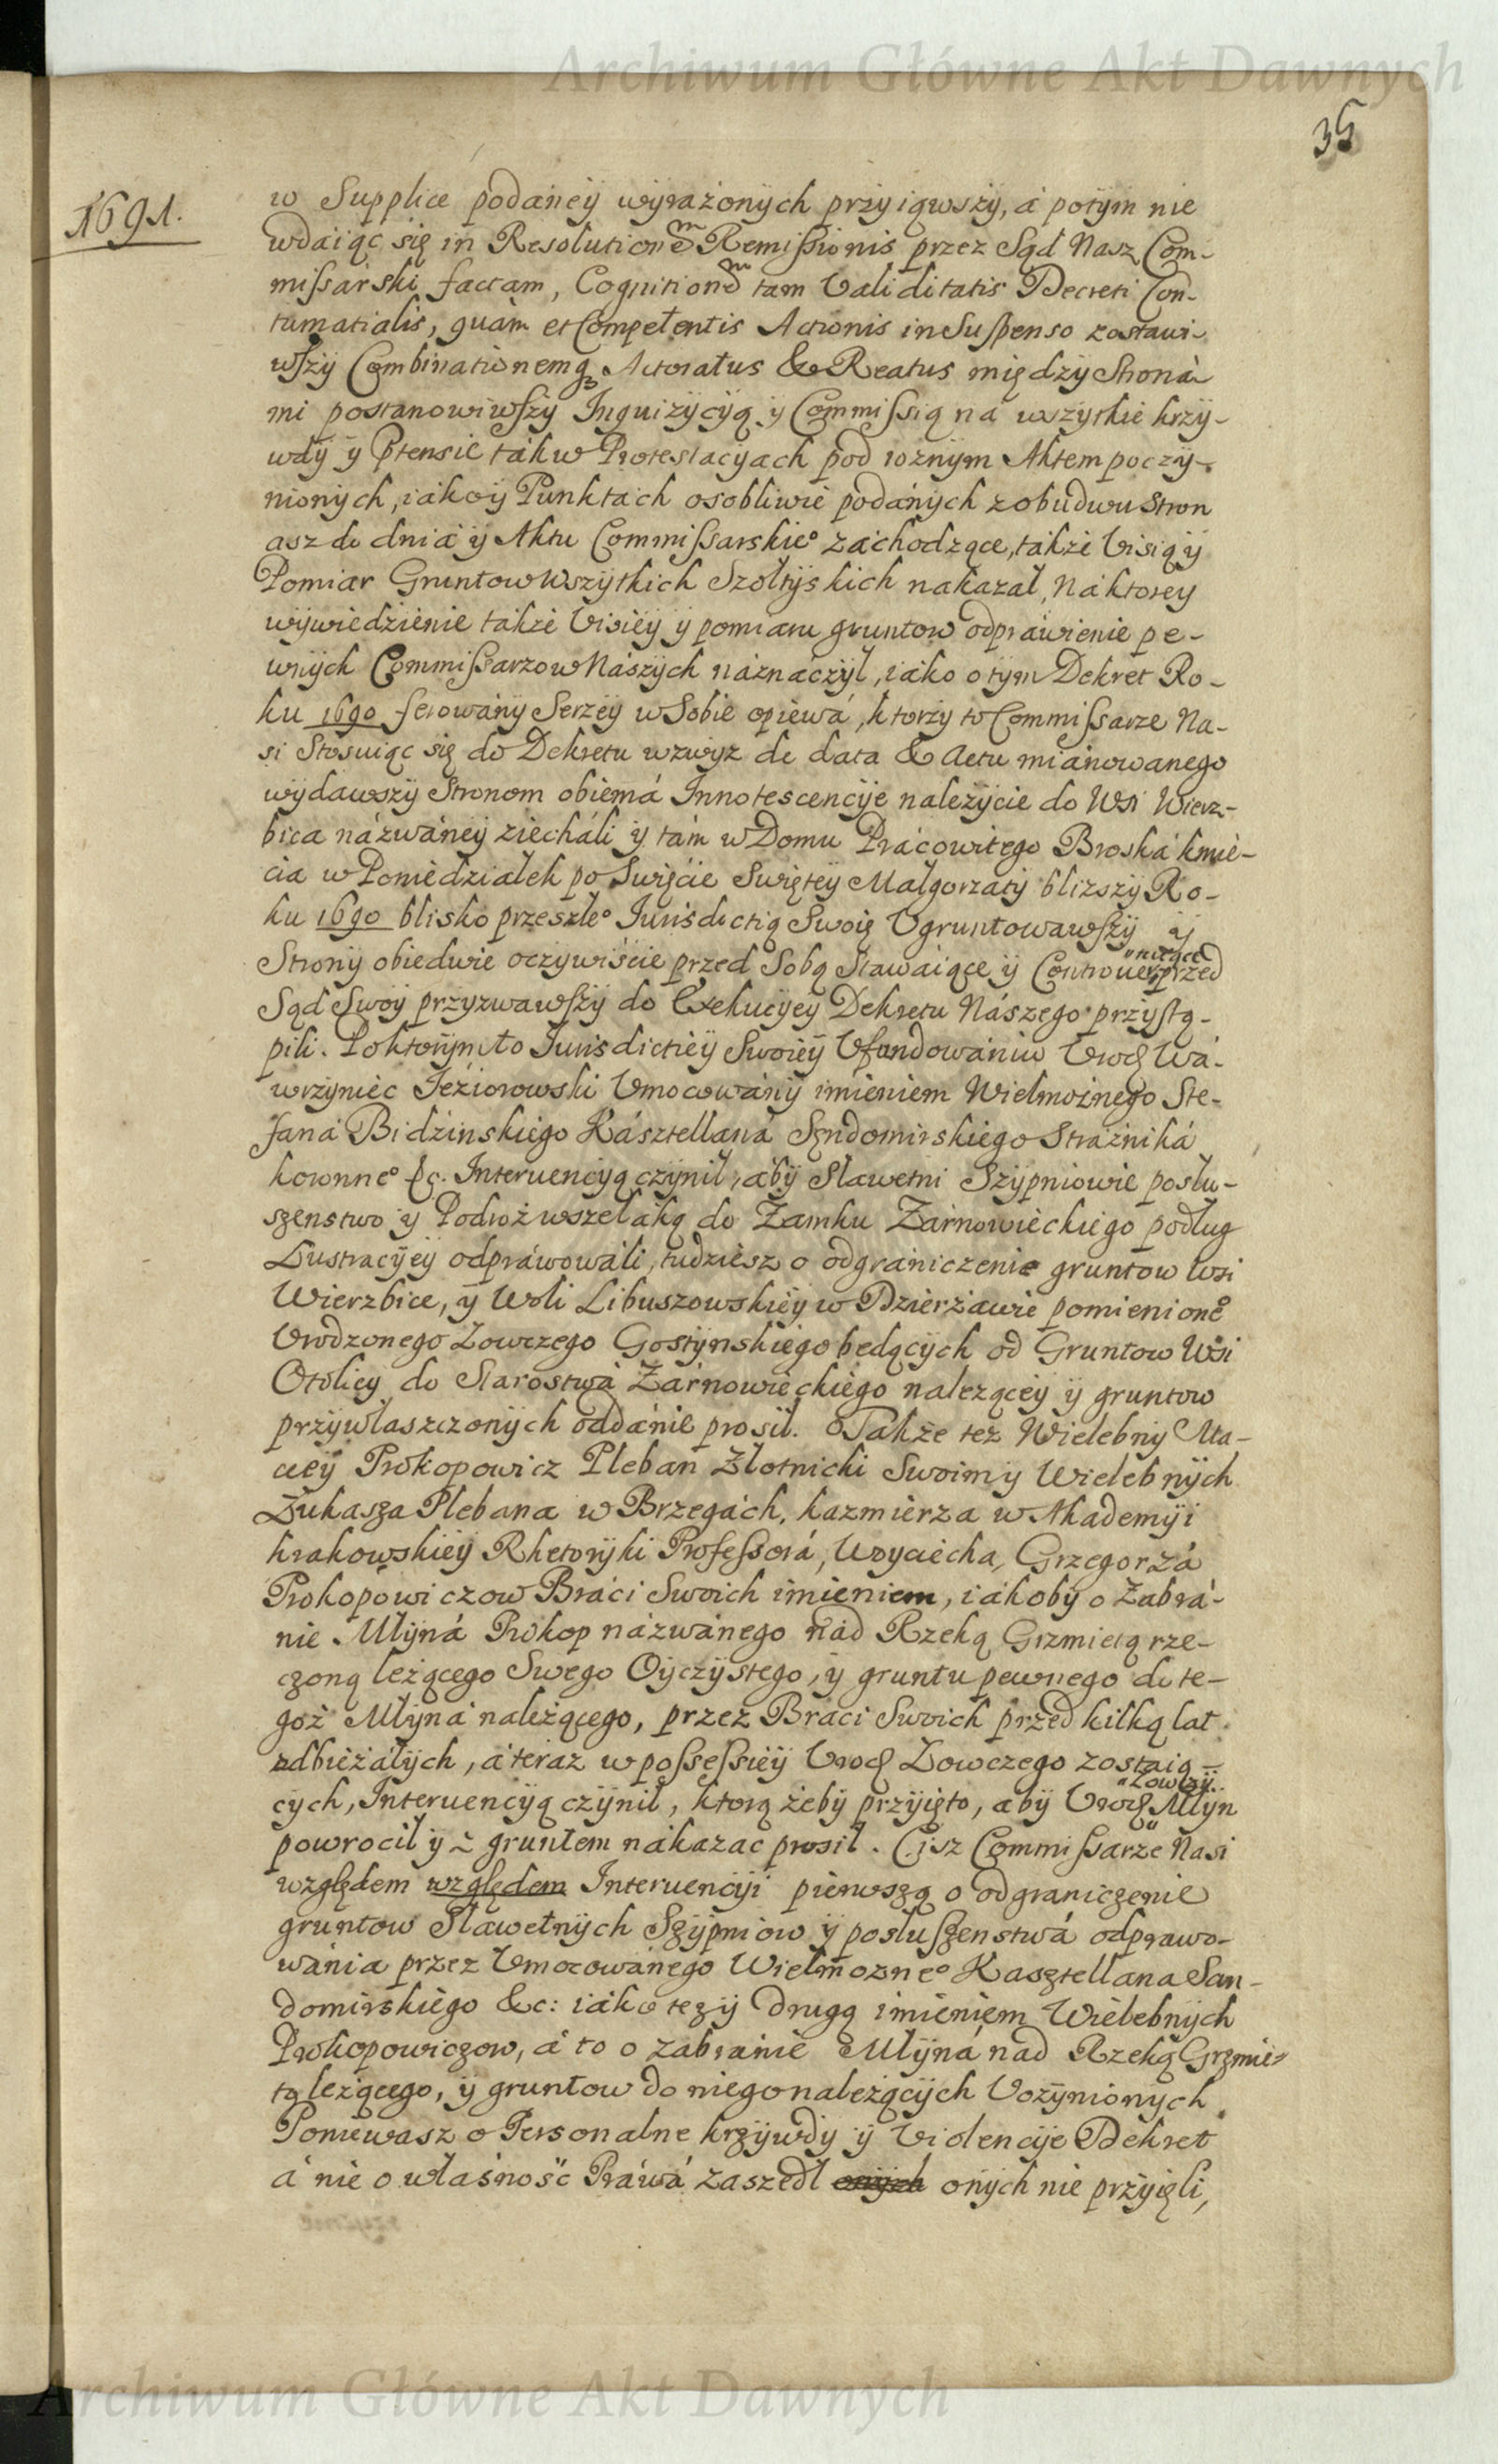 Archiwum Główne Akt Dawnych
35
1691.
w Supplice podaney wyrażonych przyiąwszy, á potym nie
wdaiąc się in Resolutionem Remissionis przez Sąd Nasz Com-
missarski factam, Cognitionem tam Validitatis Decreti Con-
tumatialis, quàm et Competentis Actionis in Suspenso zostawi-
wszy Combinationemq3 Actoratus & Reatus między Strona-
mi postanowiwszy Inquizycyą y Commissią ná wszytkie krzy-
wdy y Ptensie ták w Protestacyach pod roznym Aktem poczy-
nionych, iáko y Punktách osobliwie podánych z obudwu Stron
asz do dniá y Aktu Commissarskieo zachodzące, także Visią y
Pomiar Gruntow Wszytkich Szołtyskich nakazał, Ná ktorey
wywiedzienie także Visiey y pomiaru gruntow odpráwienie pe-
wnych Commissarzow Nászych náznáczył, iáko o tym Dekret Ro-
ku 1690 ferowány Serzey w Sobie opiewá, ktorzy to Commissarze Na-
si Stosuiąc się do Dekretu wzwyz de data & Actu mianowanego
wydawszy Stronom obiemá Innotescencye należycie do Wsi Wierz-
bica názwáney ziecháli y tám w Domu Prácowitego Broská kmie-
cia w Poniedziałek po Swięcie Swiętey Małgorzaty blizszy Ro-
ku 1690 blisko przeszłeo Iurisdictią Swoię Vgruntowawszy y
Strony obiedwie oczywiście przed Sobą Stawaiące y Controuer przed
Sąd Swoy przyzwawszy do Exekucyey Dekretu Nászego przystą-
pili. Po ktorym to Iurisdictiey Swoiey Vfundowániu Vrod Wá-
wrzyniec Ieziorowski Vmocowány imieniem Wielmożnego Ste-
faná Bidzinskiego Kásztellaná Sędomirskiego Strażniká
koronneo &c. Interuencyą czynił, áby Sławetni Szypniowie posłu-
szenstwo y Podroż wszeláką do Zamku Zárnowieckiego podług
Lustracyey odpráwowáli, tudziesz o odgraniczenie gruntow Wsi
Wierzbice, y Woli Libuszowskiey w Dzierżawie pomienioneo
Vrodzonego Łowczego Gostynskiego będących od Gruntow Wsi
Otolicy do Starostwá Zárnowieckiego nalezącey y gruntow
przywłaszczonych oddánie prosił. Także tez Wielebny Ma-
ciey Prokopowicz Pleban Złotnicki Swoim y Wielebnych
Łukasza Plebana w Brzegách, kazmierza w Akademyi
krakowskiey Rhetoryki Professorá, Woyciecha, Grzegorzá
Prokopowiczow Bráci Swoich imieniem, iákoby o Zabrá-
nie Młyná Prokop názwánego nád Rzeką Grzmiącą rze-
czoną leżącego Swego Oyczystego, y gruntu pewnego do te-
goż Młyná należącego, przez Braci Swoich przed kilką lat
odbieżáłych, á teraz w possessiey Vrod Łowczego zostaią-
cych, Interuencyą czynił, ktorą żeby przyięto, aby Vrod "Łowczy" Młyn
powrocił y z gruntem nákazac prosił. Cisz Commissarze Nasi
względem względem Interuencyi pierwszą o odgraniczenie
gruntow Sławetnych Szypniow y posłuszenstwá odprawo-
wánia przez Vmocowánego Wielmozneo Kasztellana San-
domirskiego &c: iáko tez y drugą imieniem Wielebnych
Prokopowiczow, á to o zabranie Młyná nad Rzeką Grzmię-
tą leżącego, y gruntow do niego należących Vczynionych
Poniewasz o Personalne krzywdy y Violencye Dekret
á nie o własność Práwá zaszedł onych onych nie przyięli,
Archiwum Główne Akt Dawnych